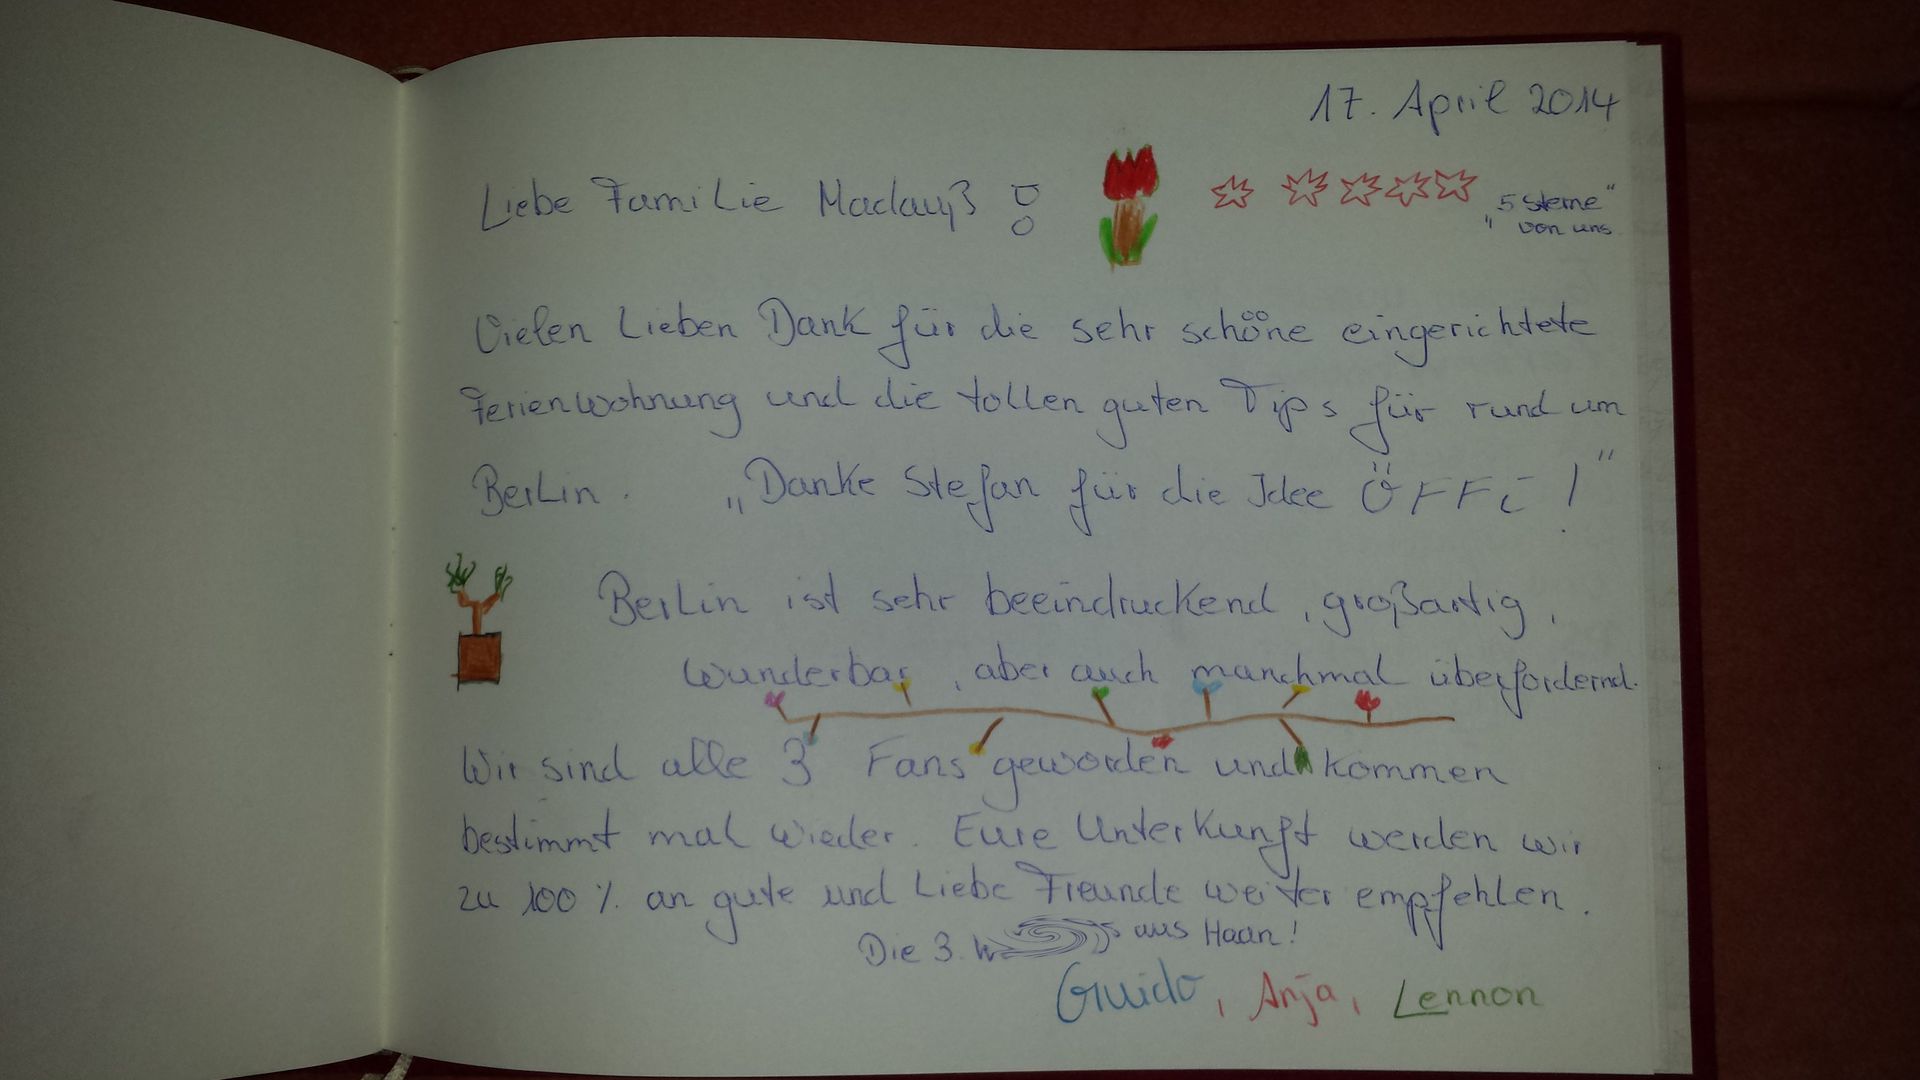 17. April 2014
Liebe Familie Madauß !
"5 Sterne"
von uns
Vielen lieben Dank für die sehr schöne eingerichtete
Ferienwohnung und die tollen guten Tips für rund um
Berlin. „Danke Stefan für die Idee ÖFFI!"
Berlin ist sehr beeindruckend, großartig,
wunderbar, aber auch manchmal überfordernd.
Wir sind alle 3 Fans geworden und kommen
bestimmt mal wieder. Eure Unterkunft werden wir
zu 100 % an gute und liebe Freunde weiter empfehlen.
Die 3 aus Haan!
Guido, Anja, Lennon